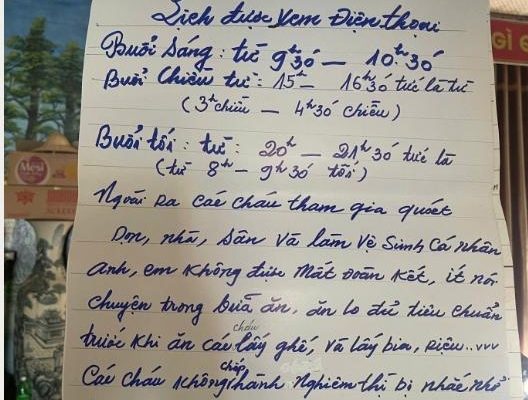 Lịch được xem Điện thoại
Buổi Sáng: từ 9h30 — 10h30
Buổi Chiều từ: 15h — 16h30 tức là từ
(3h chiều — 4h30 chiều)
Buổi tối: từ: 20h — 21h30 tức là
(từ 8h — 9h30 tối)
Ngoài ra các cháu tham gia quét
Dọn, nhà, sân và làm vệ sinh cá nhân
Anh, em không được mất đoàn kết, ít nói
chuyện trong bữa ăn, ăn lo đủ tiêu chuẩn
trước khi ăn các cháu lấy ghế, và lấy bia, rượu..vvv
Các cháu không chấp hành nghiêm thì bị nhắc nhở
GÌ